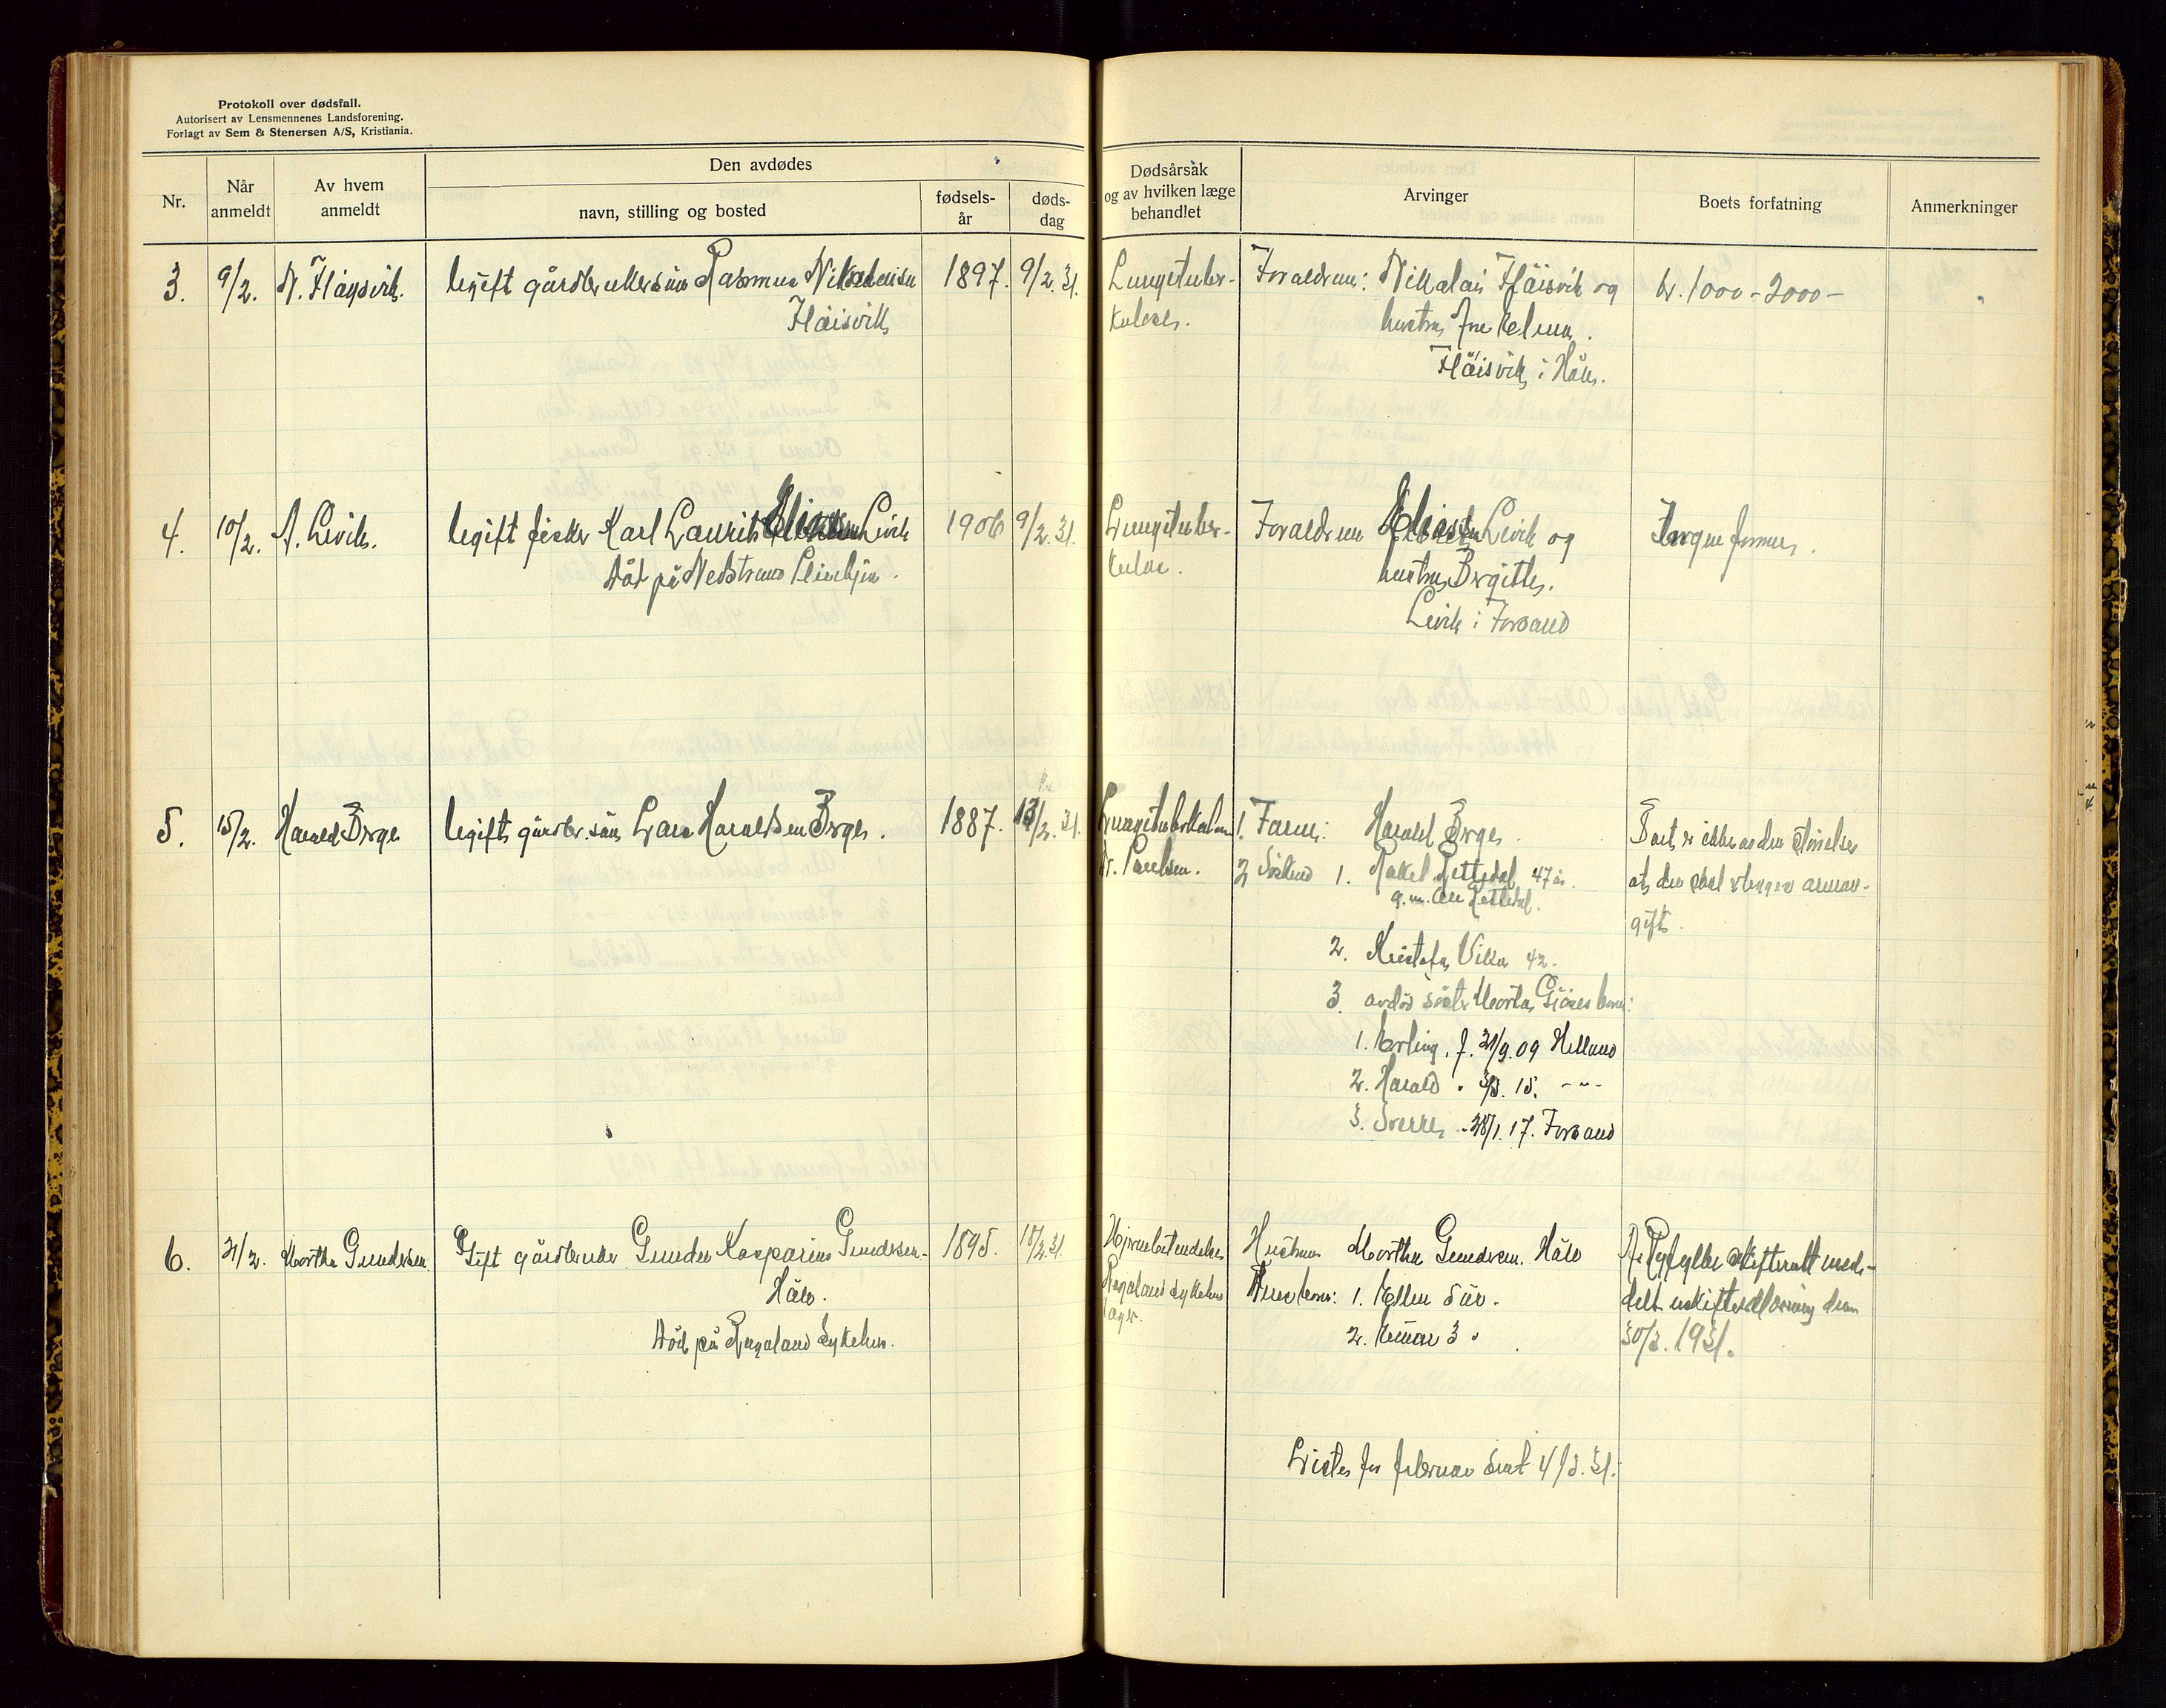 Protokoll over dødsfall.
Autorisert av Lensmennenes Landsforening.
Forlagt av Sem & Stenersen A/S, Kristiania.
Nr.
Når anmeldt
Av hvem anmeldt
Den avdødes
navn, stilling og bosted
fødsels-år
døds-dag
Dødsårsak og av hvilken læge behandlet
Arvinger
Boets forfatning
Anmerkninger
3. 9/2. N. Fløysvik. Ugift gårdbrukersøn Rasmus Nikolaisen 1897. 9/2.31. Lungetuber- Forældrene: Nikolai Fløisvik og kr. 1000-2000-
Fløisvik kulose. hustru
Fløisvik i Høle.
4. 10/2. A. Levik. Ugift fisker Karl Laurits Eliassen Levik 1906 9/2.31. Lungetuber- Forældrene Levik og Ingen formue.
død på Nedstrand Pleiehjem. hustru Birgitte,
Levik i Forsand
5. 15/2. Harald Berge Ugift gårdbr. søn Lars Haraldsen Berge. 1887. 13/2.31. Lungetuberkulose 1. Faren: Harald Berge. Boet er ikke av den størrelse
Dr. Paulsen. 2 Søskend 1. Rakel Rettedal 47 år. at der skal erlegges arveav-
g.m. Ole Rettedal. gift.
2. Kristofa Vika 42.
3 avdød søster Marta barn:
1. Erling, f. 21/9.09 Helland
2. Harald " 3/8.15. -"-
3. Sverre " 28/1.17. Forsand
6. 21/2. Marthe Gundersen. Gift gårdbruker Gunder Kasparius Gundersen 1895. 18/2.31. Hjernebetendelse Hustruen Marthe Gundersen. Høle Av Ryfylke skifterett med-
Høle. Rogaland sykehus barn: 1. Ellen 5 år. delt uskifteerklæring den
Død på Rogaland Sykehus. læger. 2. Einar 3 " 30/3. 1931.
Liste for februar sendt 4/3.31.